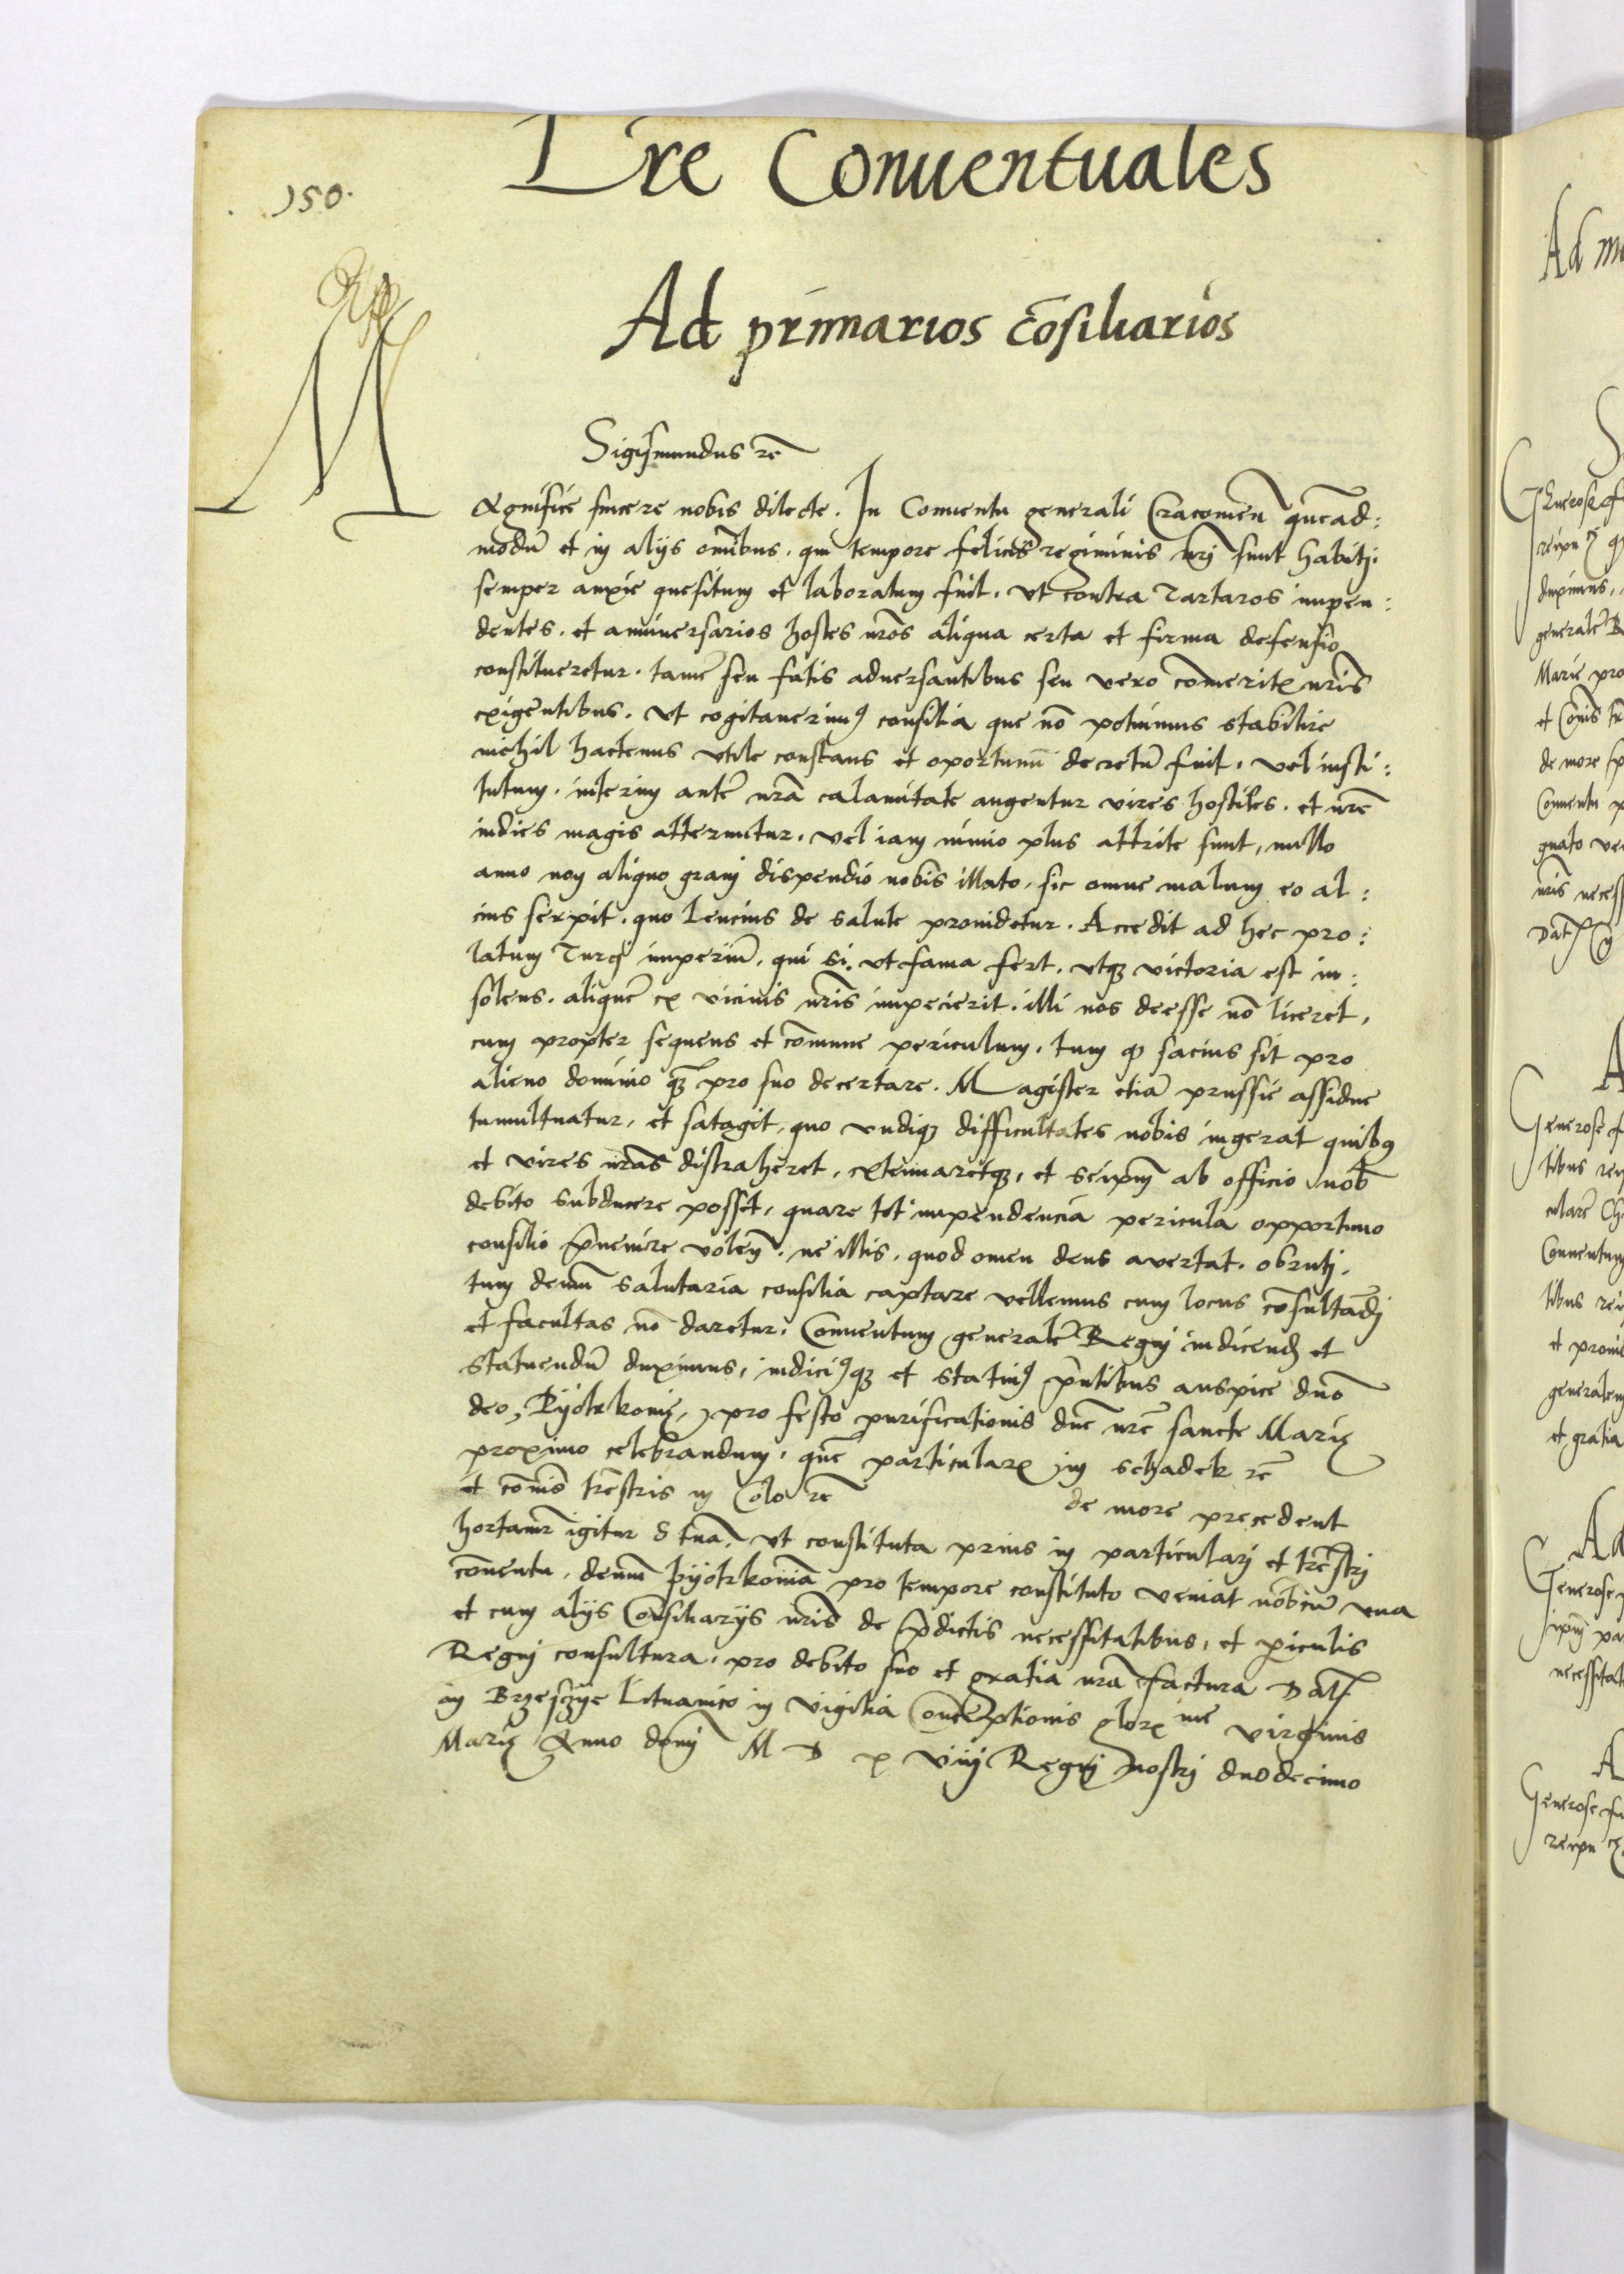 150.
Lre Conuentuales
Ad primarios cōsiliarios
Sigismundus rē
Magnifice sincere nobis dilecte. In Conuentu generali Cracouien̄ quēad:
modū et in alijs omībus, qui tempore felicis regiminis nr̄i sunt habiti.
semper anxie quesitum et laboratum fuit. Vt contra Tartaros impen:
dentes. et anniuersarios hostes nrōs aliqua certa et firma defensio
constitueretur. tamē seu fatis aduersantibus seu vero
exigentibus. Vt cogitauerimus consilia que nō potuimus stabilire
nichil hactenus vtile constans et oportunū decretū fuit. vel insti:
tutum. interim autē nrā calamitate augentur vires hostiles. et nrē
indies magis atteruntur. vel iam nimio plus attrite sunt, nullo
anno non aliquo graui dispendio nobis illato, sic omne malum eo al:
cius serpit. quo lencius de salute prouidetur. Accedit ad hec pro:
latum Turci imperiū, qui si. vt fama fert. vtqȝ victoria est in:
solens. aliquē ex vicinis nrīs impecierit. illi nos deesse nō liceret,
cum propter sequens et cōmune periculum. tum qȝ sacius sit pro
alieno dominio qȝ pro suo decertare. Magister etiā prussie assidue
tumultuatur, et satagit, quo vndiqȝ difficultates nobis ingerat quibꝯ
et vires nrās distraheret, extenuaretqȝ, et seipm̄ ab officio nob̄
debito subducere posset, quare tot impendencia pericula opportuno
consilio p̄uenire volen̄. ne illis. quod omen deus avertat. obruti.
tum demū salutaria consilia captare vellemus cum locus cōsultādj
et facultas nō daretur. Conuentum generalē Regni indicend̄ et
statuendū duximus, indiciꝯqȝ et statuiꝯ p̄ntibus auspice dn̄o
deo, Pijotrkouię, pro festo purificationis dnē nrē sancte Marię
proximo celebrandum. quē particularꝭ in schadek rē
et cōnis trēstris in Colo rē de more precedent
hortamr̄ igitur S tuā. vt constituta prius in particularj et trēstrj
cōuentu, demū pijotrkouiā pro tempore constituto veniat nobcū vna
et cum alijs Consiliarijs nrīs de p̄dictis necessitatibus, et piculis
Regnj consultura. pro debito suo et gratia nrā factura Dat̄
in Brzesczye lituanico in vigilia Conceptionis glorꝭ me virginis
Marię Anno dnī M D x viij Regnj nostrj duodecimo